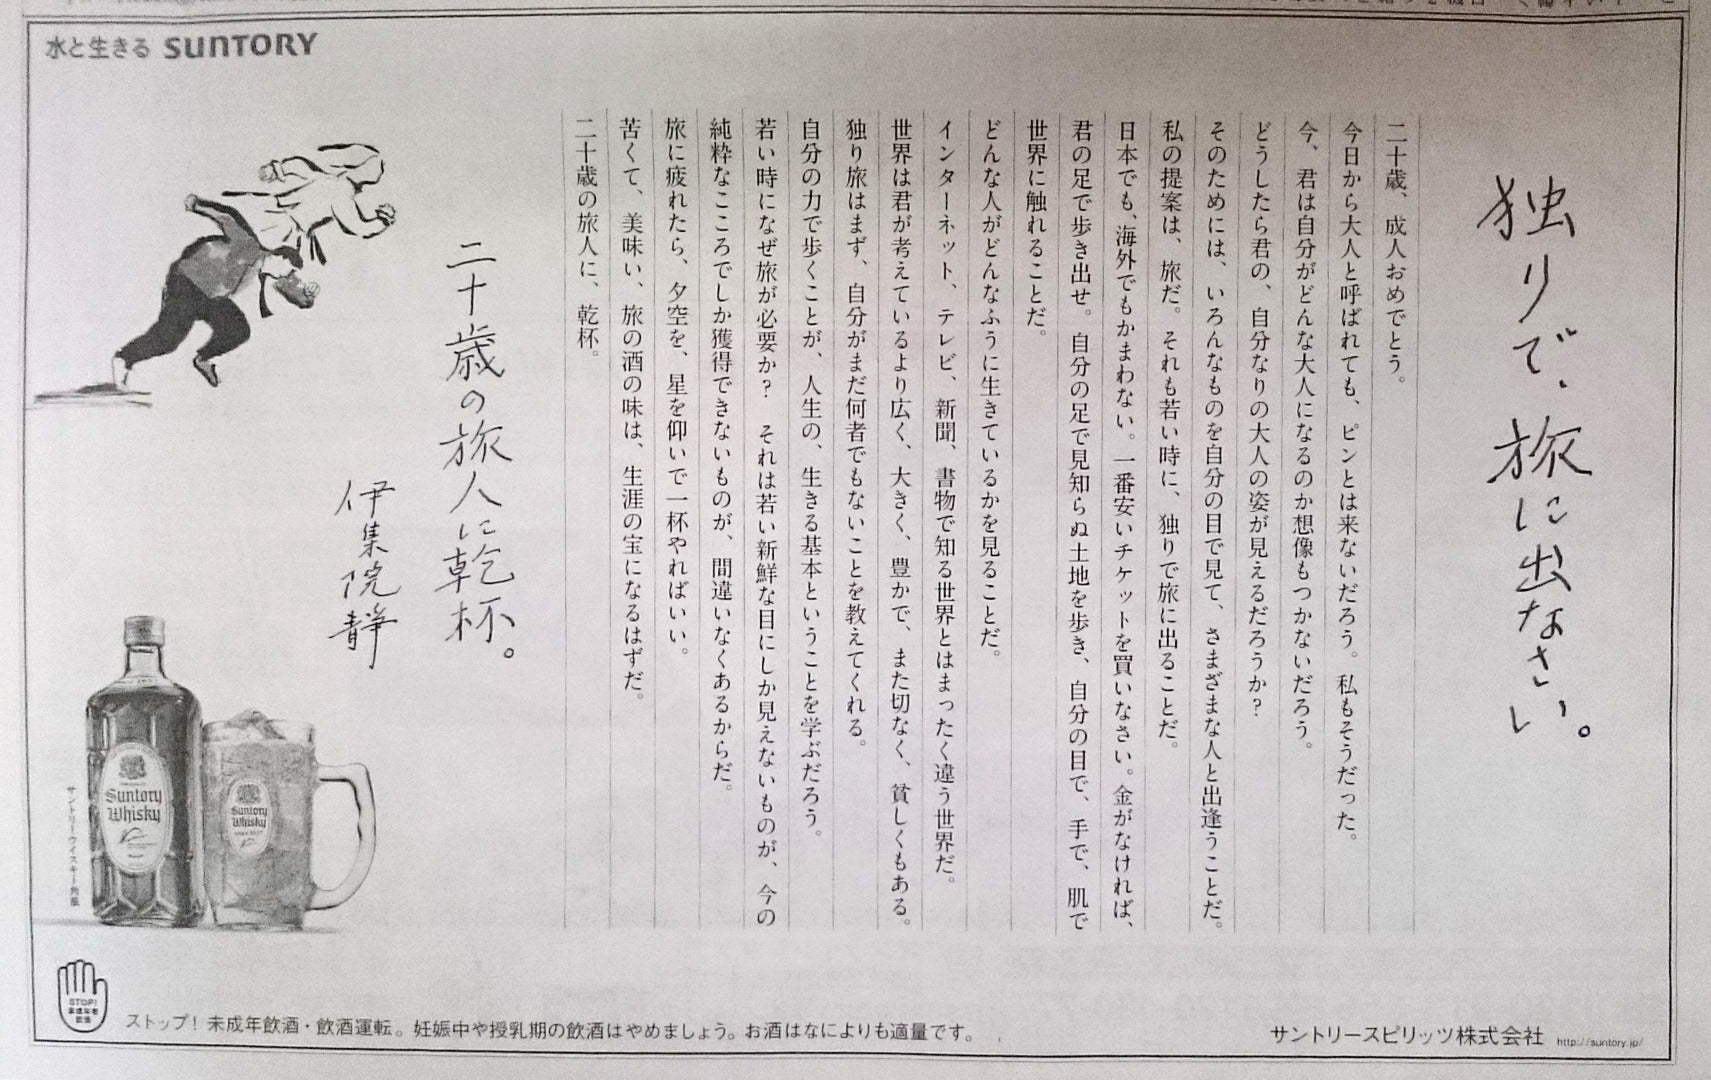 水と生きる SUNTORY
独りで、旅に出なさい。
二十歳、成人おめでとう。
今日から大人と呼ばれても、ピンとは来ないだろう。私もそうだった。
今、君は自分がどんな大人になるのか想像もつかないだろう。
どうしたら君の、自分なりの大人の姿が見えるだろうか?
そのためには、いろんなものを自分の目で見て、さまざまな人と出逢うことだ。
私の提案は、旅だ。それも若い時に、独りで旅に出ることだ。
日本でも、海外でもかまわない。一番安いチケットを買いなさい。金がなければ、
君の足で歩き出せ。自分の足で見知らぬ土地を歩き、自分の目で、手で、肌で
世界に触れることだ。
どんな人がどんなふうに生きているかを見ることだ。
インターネット、テレビ、新聞、書物で知る世界とはまったく違う世界だ。
世界は君が考えているより広く、大きく、豊かで、また切なく、貧しくもある。
独り旅はまず、自分がまだ何者でもないことを教えてくれる。
自分の力で歩くことが、人生の、生きる基本ということを学ぶだろう。
若い時になぜ旅が必要か? それは若い新鮮な目にしか見えないものが、今の
純粋なこころでしか獲得できないものが、間違いなくあるからだ。
旅に疲れたら、夕空を、星を仰いで一杯やればいい。
苦くて、美味い、旅の酒の味は、生涯の宝になるはずだ。
二十歳の旅人に、乾杯。
二十歳の旅人に乾杯。
伊集院静
サントリーウイスキー角瓶
Suntory
Whisky
Suntory
Whisky
STOP!
未成年者
飲酒
ストップ! 未成年飲酒・飲酒運転。妊娠中や授乳期の飲酒はやめましょう。お酒はなによりも適量です。
サントリースピリッツ株式会社 http://suntory.jp/